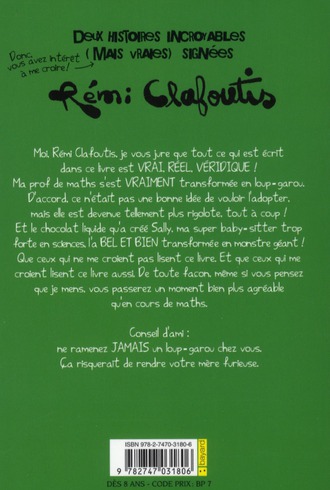 Deux histoires incroyables
(Mais vraies) signées
Donc,
vous avez intérêt
à me croire !
Rémi Clafoutis
Moi, Rémi Clafoutis, je vous jure que tout ce qui est écrit
dans ce livre est VRAI, RÉEL, VÉRIDIQUE !
Ma prof de maths s'est VRAIMENT transformée en loup-garou.
D'accord, ce n'était pas une bonne idée de vouloir l'adopter,
mais elle est devenue tellement plus rigolote, tout à coup !
Et le chocolat liquide qu'a créé Sally, ma super baby-sitter trop
forte en sciences, l'a BEL ET BIEN transformée en monstre géant !
Que ceux qui ne me croient pas lisent ce livre. Et que ceux qui me
croient lisent ce livre aussi. De toute façon, même si vous pensez
que je mens, vous passerez un moment bien plus agréable
qu'en cours de maths.
Conseil d'ami :
ne ramenez JAMAIS un loup-garou chez vous.
Ça risquerait de rendre votre mère furieuse.
ISBN 978-2-7470-3180-6
9 782747 031806
bayard
DÈS 8 ANS - CODE PRIX : BP 7